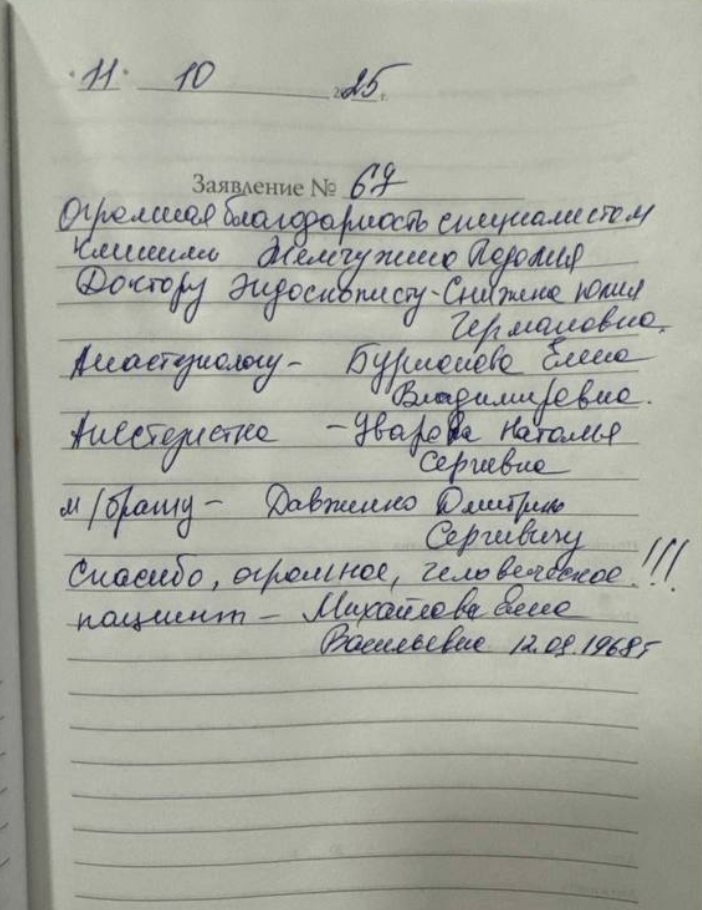 "11" 10 25 г.
Заявление № 67
Огромная благодарность специалистом
клиники Жемчужина Подолия
Доктору Эндоскописту-Снижена Юлия
Германовна.
Анастезиологу - Бурмонова Елена
Владимировна.
Анестезистка - Уварова Наталья
Сергиевна
м/брату - Давженко Дмитрию
Сергивичу
Спасибо, огромное, человеческое!!!
пациент - Михайлова Елена
Васильевна 12.09.1968г